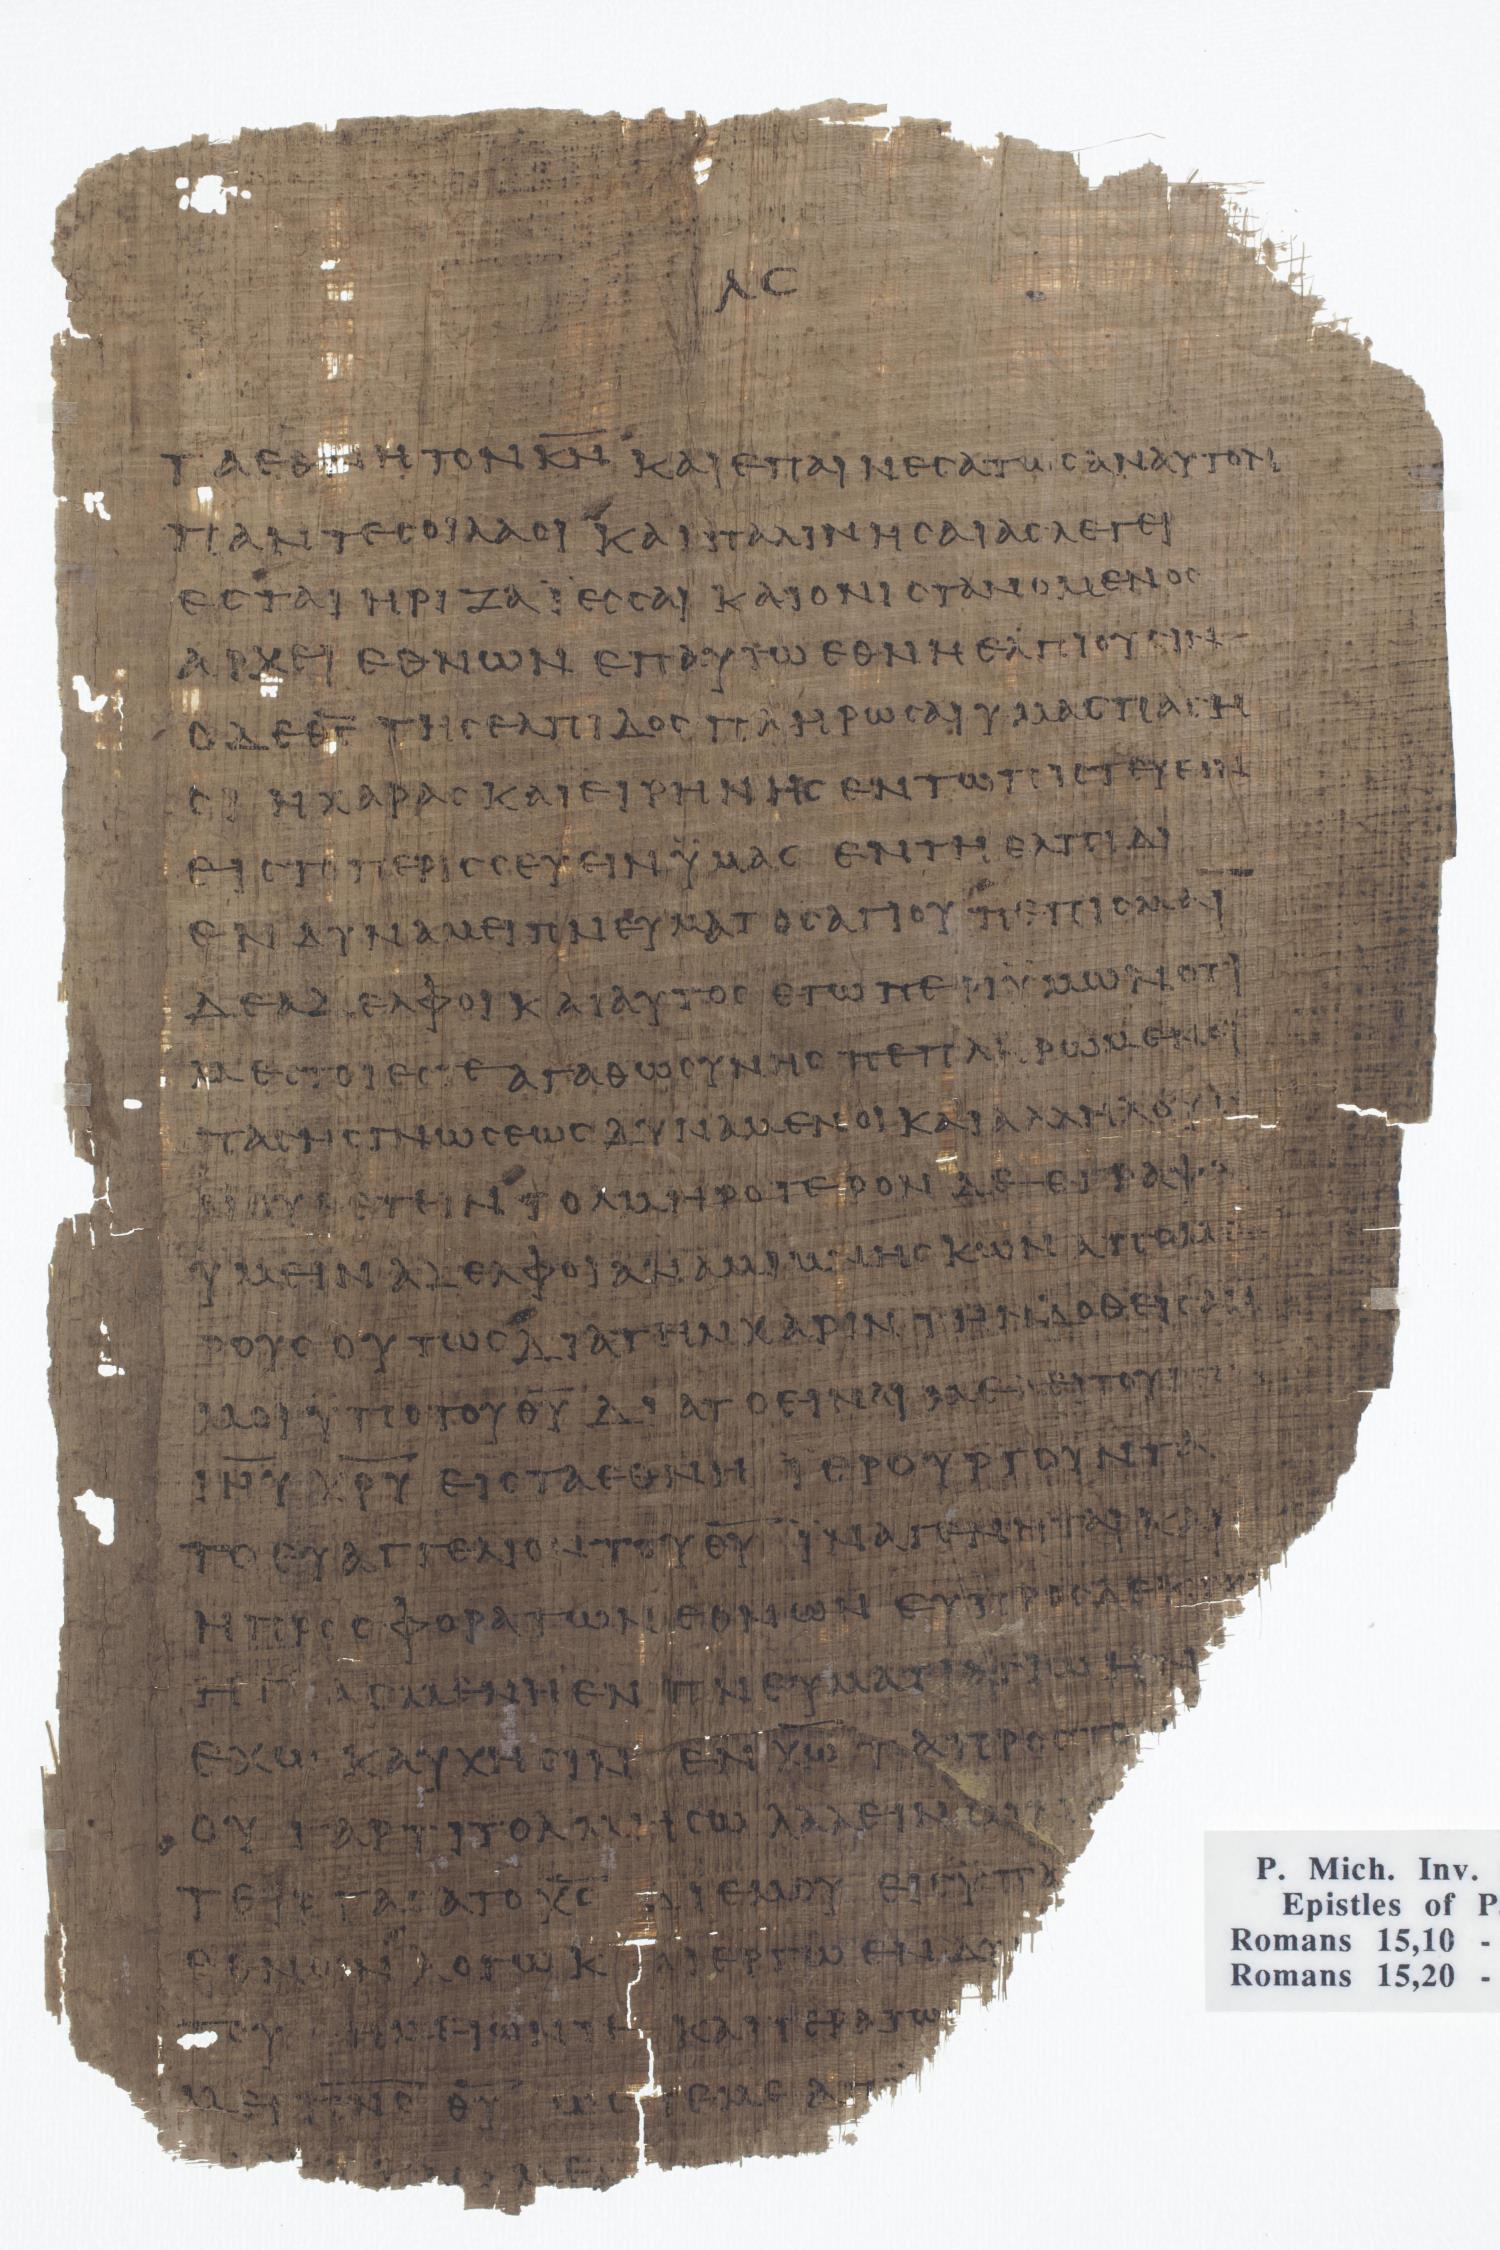 λϲ
ταεθνητονκ̅ν̅ καιεπαινεϲατωϲαναυτον
παντεϲοιλαοι καιπαλινηϲαιαϲλεγει
εϲται ηριζαϊεϲϲαι καιονιϲτανομενοϲ
αρχει εθνων επαυτω εθνηελπιουϲιν
οδεθ̅ϲ̅ τηϲελπιδοϲπληρωϲαιυμαϲπαϲη
χαραϲκαιειρηνηϲεντωπιϲτευειν
ειϲτοπεριϲϲευεινϋμαϲ εντη ελπιδι
ενδυναμειπνευματοϲαγιου πεπιϲμαι
δεαδελφοικαιαυτοϲ εγωπεριϋμωνοτι
μεϲτοιεϲτεαγαθωϲυνηϲ πεπληρωμενοι
παϲηϲγνωϲεωϲδυναμενοικαιαλληλουϲ
τολμηροτερονδεεγραψα
υμειναδελφοιαναμιμνηϲκων απομε
ρουϲουτωϲδιατηνχαριν τηνδοθειϲαν
μοιϋποτουθ̅υ̅ διατοειναιμελειτουργον
ι̅η̅υ̅ χ̅ρ̅υ̅ ειϲταεθνη ϊερουργουντα
τοευαγγελιοντουθ̅υ̅ ϊναγενηται και
ηπροϲφορατων εθνων ευπροϲδεκτοϲ
ηγιαϲμενηεν πνευματιαγιωην
εχω καυχηϲιν ενχ̅ω̅ ταπροϲτο
ου γαρτιτολμηϲω λαλεινων
χ̅ϲ̅ διεμου ειϲϋπα
εθνων λογωκαιεργω ενδυ
ϲημειωντε καιτερατω
μειπ̅ν̅ϲ̅ θ̅υ̅ ωϲτεμε απ
P. Mich. Inv.
Epistles of P
Romans 15,10 -
Romans 15,20 -